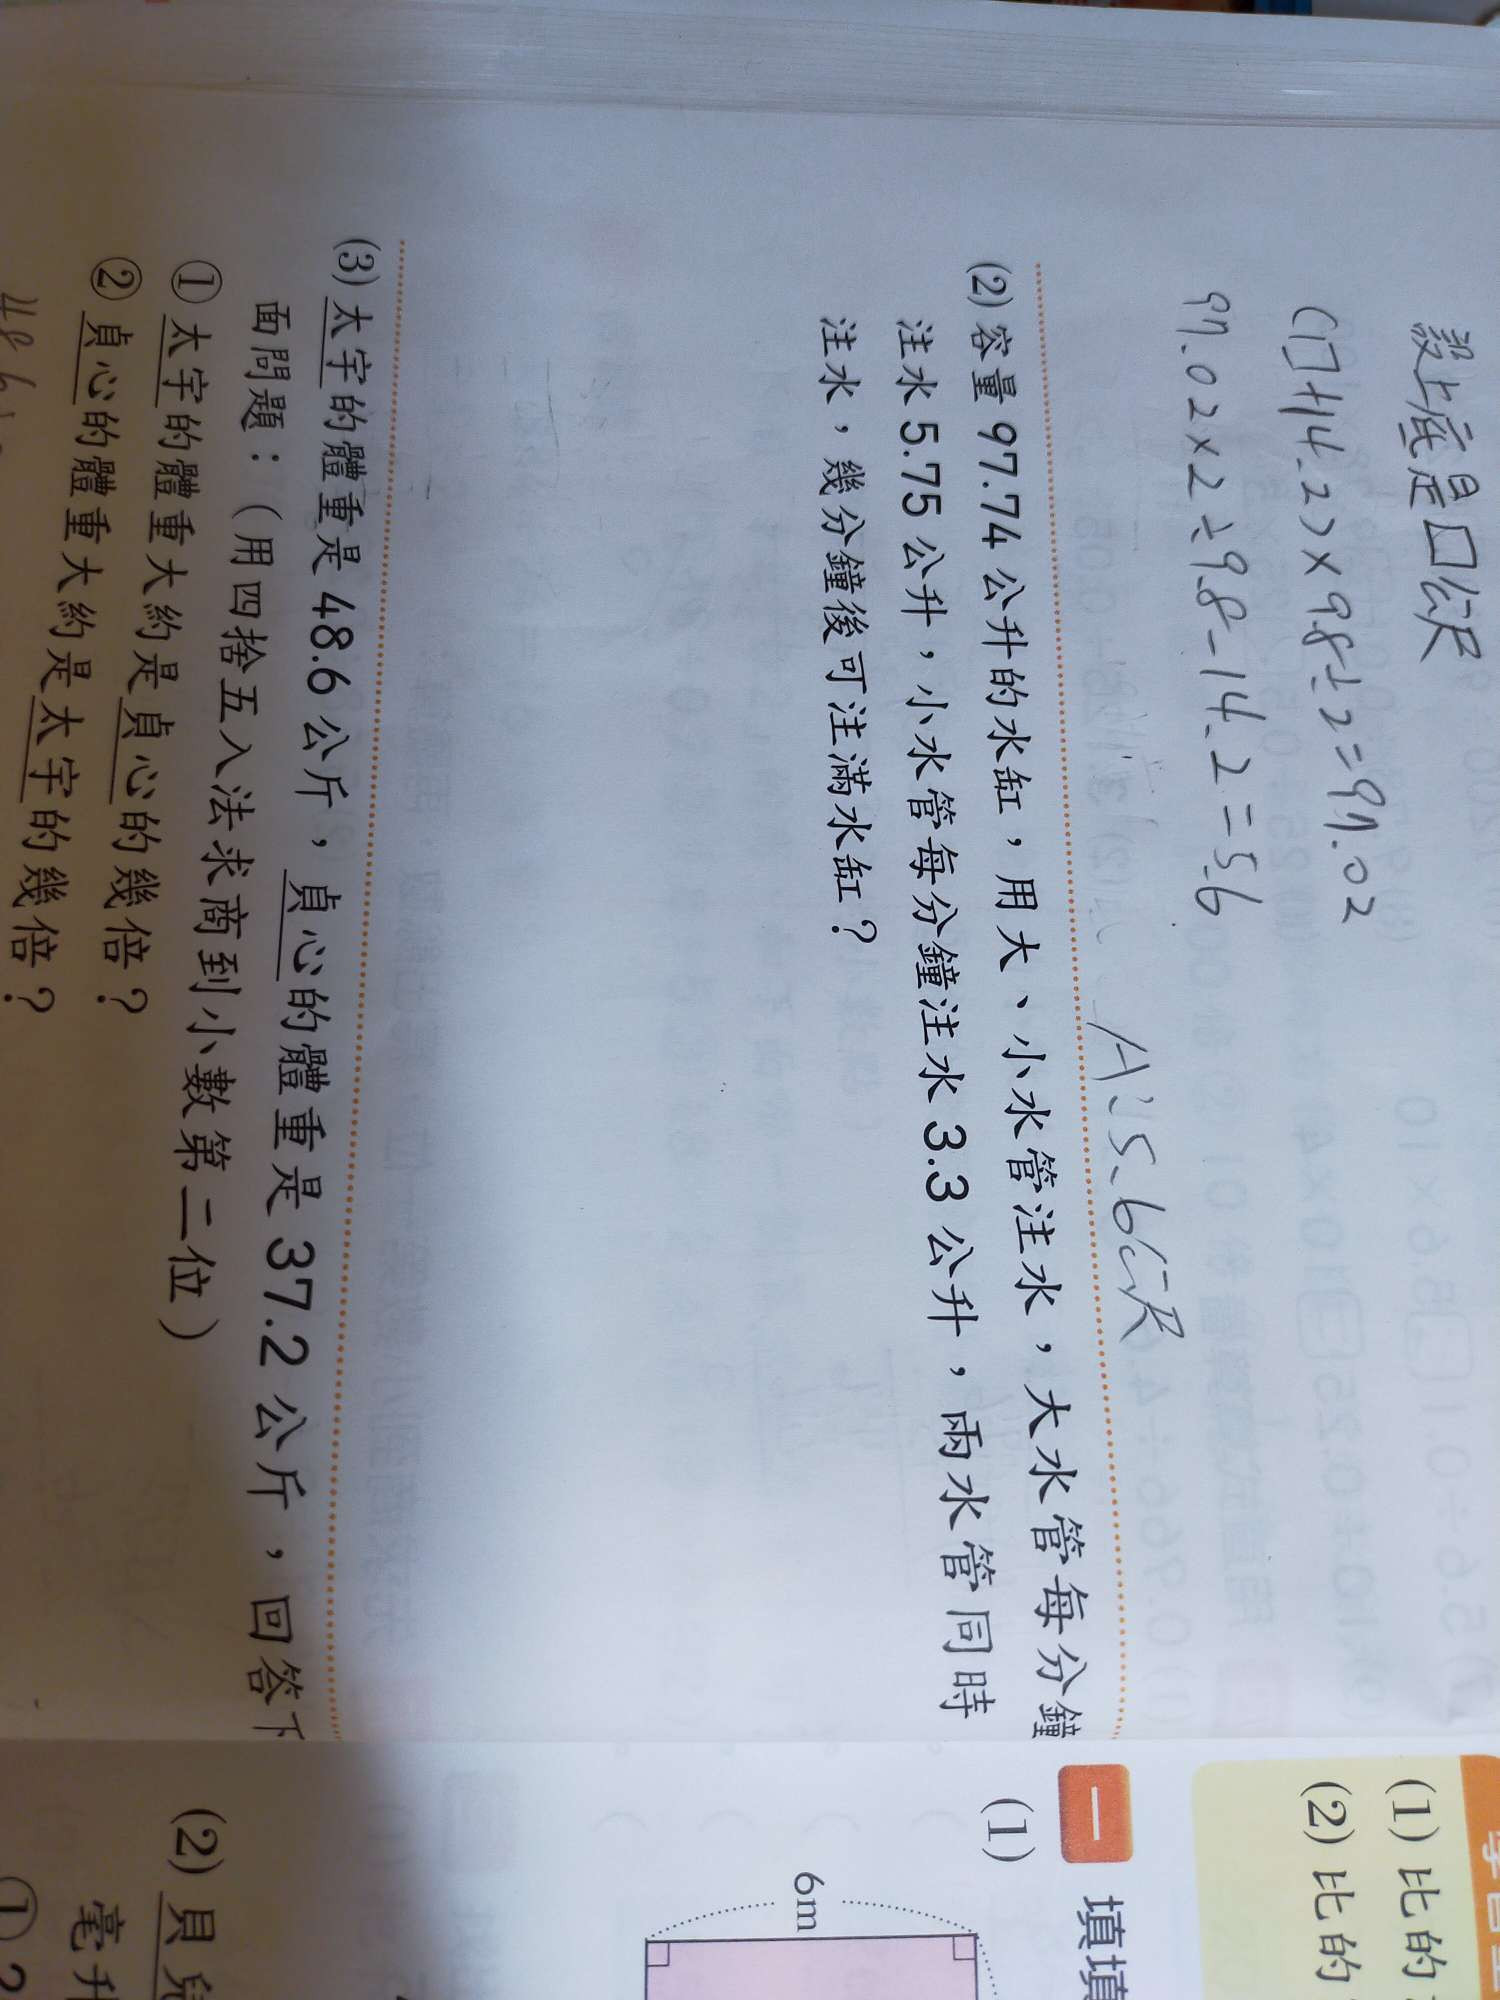 設上底是口公尺
(口+14.2)×9.8÷2=97.02
97.02×2÷9.8-14.2=5.6
A:5.6公尺
(2) 容量 97.74 公升的水缸，用大、小水管注水，大水管每分鐘
注水 5.75 公升，小水管每分鐘注水 3.3 公升，兩水管同時
注水，幾分鐘後可注滿水缸？
(3) 太宇的體重是 48.6 公斤，貞心的體重是 37.2 公斤，回答下
面問題：（用四捨五入法求商到小數第二位）
① 太宇的體重大約是貞心的幾倍？
② 貞心的體重大約是太宇的幾倍？
(1) 比的
(2) 比的
一 填填
(1)
6m
(2) 貝兒
毫升
①